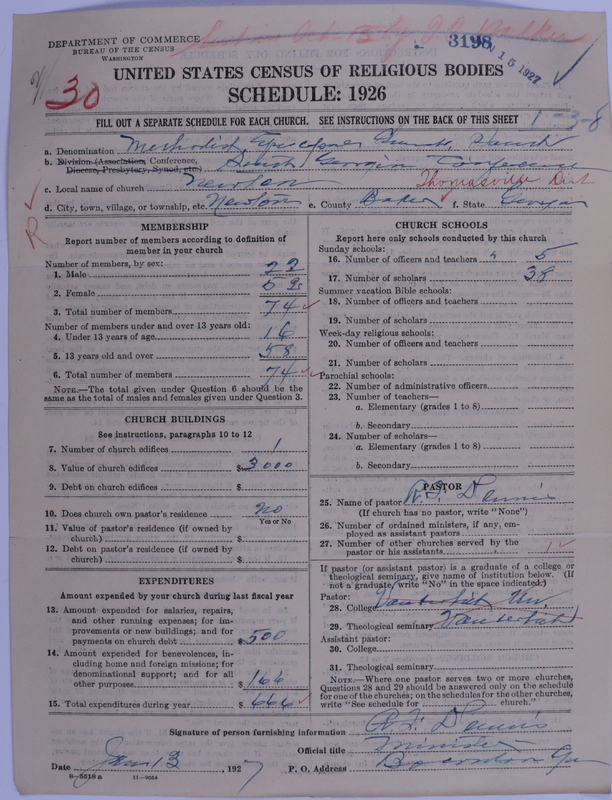 DEPARTMENT OF COMMERCE
BUREAU OF THE CENSUS
WASHINGTON
3198
JAN 15 1927
UNITED STATES CENSUS OF RELIGIOUS BODIES
SCHEDULE: 1926
30
FILL OUT A SEPARATE SCHEDULE FOR EACH CHURCH. SEE INSTRUCTIONS ON THE BACK OF THIS SHEET
1-3-8
a. Denomination Methodist Episcopal Church, South
b. Division (Association, Conference, Diocese, Presbytery, Synod, etc.) South Georgia Conference
c. Local name of church Newton
Thomasville Dist
d. City, town, village, or township, etc. Newton e. County Baker f. State Georgia
R
MEMBERSHIP
Report number of members according to definition of
member in your church
Number of members, by sex:
1. Male 22
2. Female 52
3. Total number of members 74
Number of members under and over 13 years old:
4. Under 13 years of age 16
5. 13 years old and over 58
6. Total number of members 74
NOTE.—The total given under Question 6 should be the
same as the total of males and females given under Question 3.
CHURCH BUILDINGS
See instructions, paragraphs 10 to 12
7. Number of church edifices 1
8. Value of church edifices $3000
9. Debt on church edifices $
10. Does church own pastor's residence no
Yes or No
11. Value of pastor's residence (if owned by
church) $
12. Debt on pastor's residence (if owned by
church) $
EXPENDITURES
Amount expended by your church during last fiscal year
13. Amount expended for salaries, repairs,
and other running expenses; for im-
provements or new buildings; and for
payments on church debt $500
14. Amount expended for benevolences, in-
cluding home and foreign missions; for
denominational support; and for all
other purposes $166
15. Total expenditures during year $666
CHURCH SCHOOLS
Report here only schools conducted by this church
Sunday schools:
16. Number of officers and teachers 5
17. Number of scholars 38
Summer vacation Bible schools:
18. Number of officers and teachers
19. Number of scholars
Week-day religious schools:
20. Number of officers and teachers
21. Number of scholars
Parochial schools:
22. Number of administrative officers
23. Number of teachers—
a. Elementary (grades 1 to 8)
b. Secondary
24. Number of scholars—
a. Elementary (grades 1 to 8)
b. Secondary
PASTOR
25. Name of pastor Dennis
(If church has no pastor, write "None")
26. Number of ordained ministers, if any, em-
ployed as assistant pastors
27. Number of other churches served by the
pastor or his assistants 1
If pastor (or assistant pastor) is a graduate of a college or
theological seminary, give name of institution below. (If
not a graduate, write "No" in the space indicated:)
Pastor:
28. College Vanderbilt Univ
29. Theological seminary Vanderbilt
Assistant pastor:
30. College
31. Theological seminary
NOTE.—Where one pastor serves two or more churches,
Questions 28 and 29 should be answered only on the schedule
for one of the churches; on the schedules for the other churches,
write "See schedule for church."
Signature of person furnishing information Dennis
Official title minister
Date Jan 13, 1927 P. O. Address Ga
8—5518a 11—9054